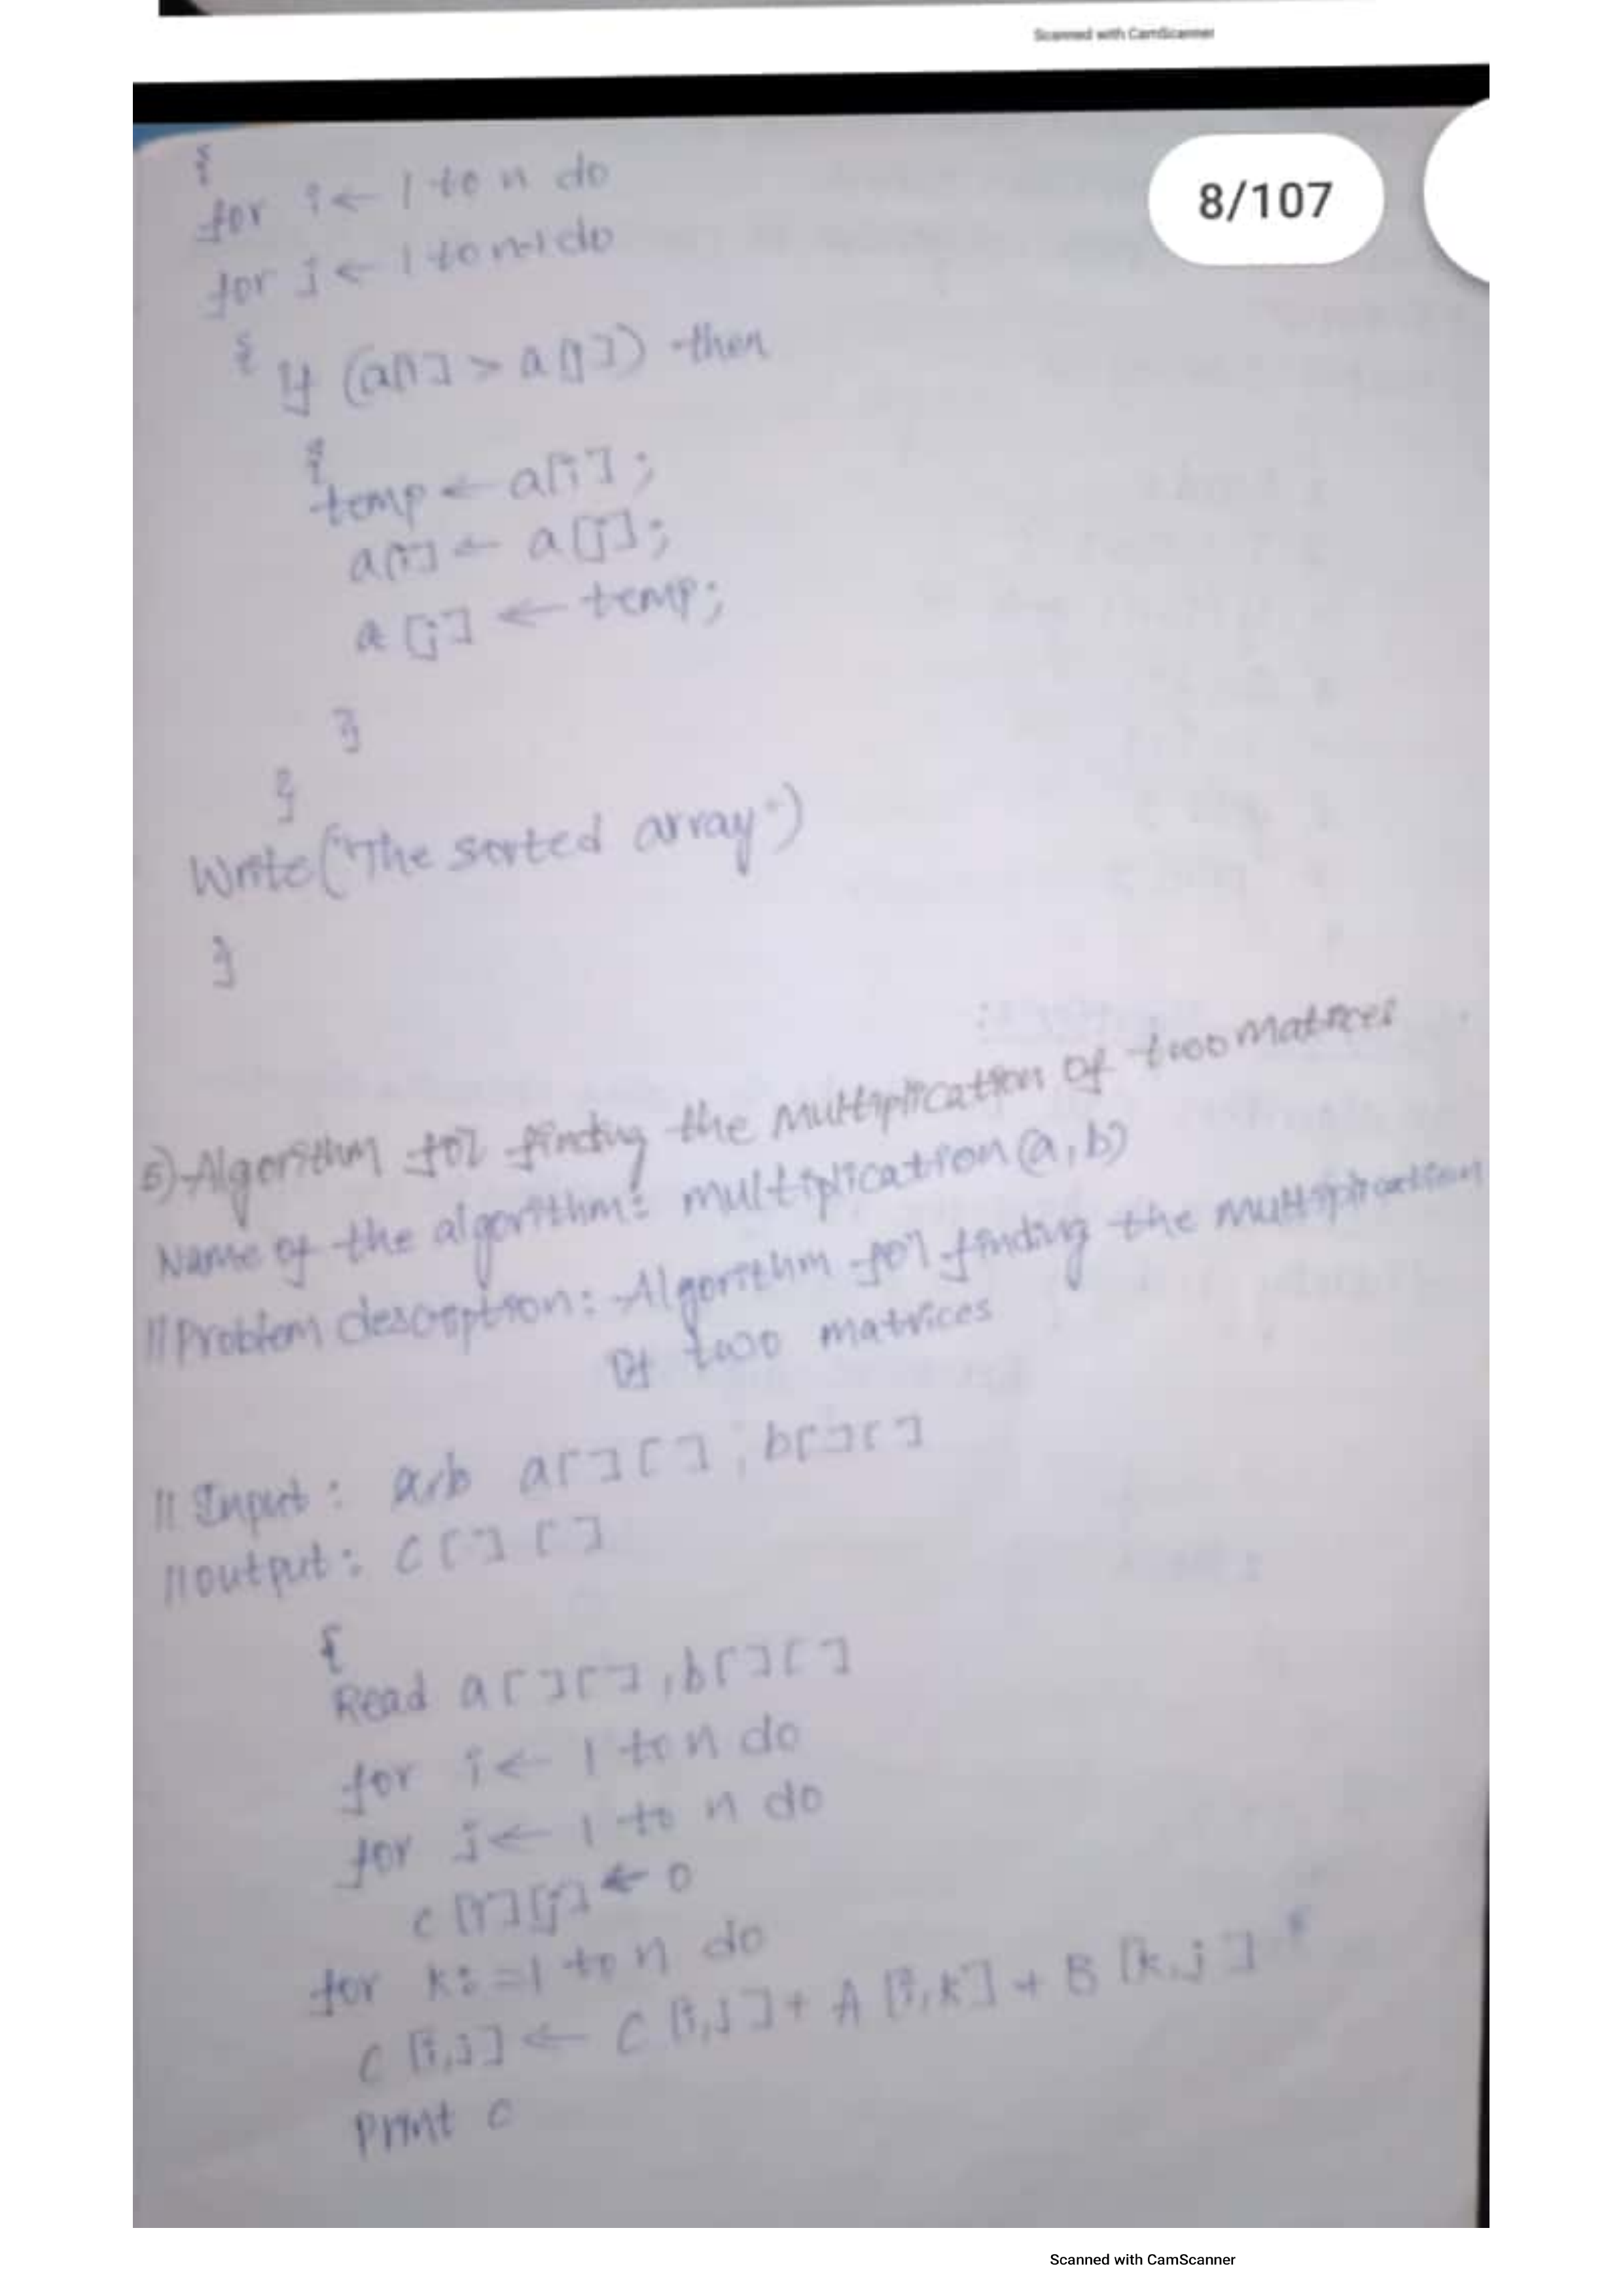 Scanned with CamScanner
8/107
{
for i ← 1 to n do
for j ← 1 to n-1 do
{
If (a[i] > a[j]) then
{
temp ← a[i];
a[i] ← a[j];
a[j] ← temp;
}
}
Write("The sorted array")
}
5) Algorithm for finding the Multiplication of two matrices
Name of the algorithm: multiplication(a,b)
//Problem description: Algorithm for finding the multiplication
of two matrices
// Input: a,b a[][], b[][]
//output: C[][]
{
Read a[][], b[][]
for i ← 1 to n do
for j ← 1 to n do
c[i][j] ← 0
for k:=1 to n do
C[i,j] ← C[i,j] + A[i,k] + B[k,j]
Print c
Scanned with CamScanner